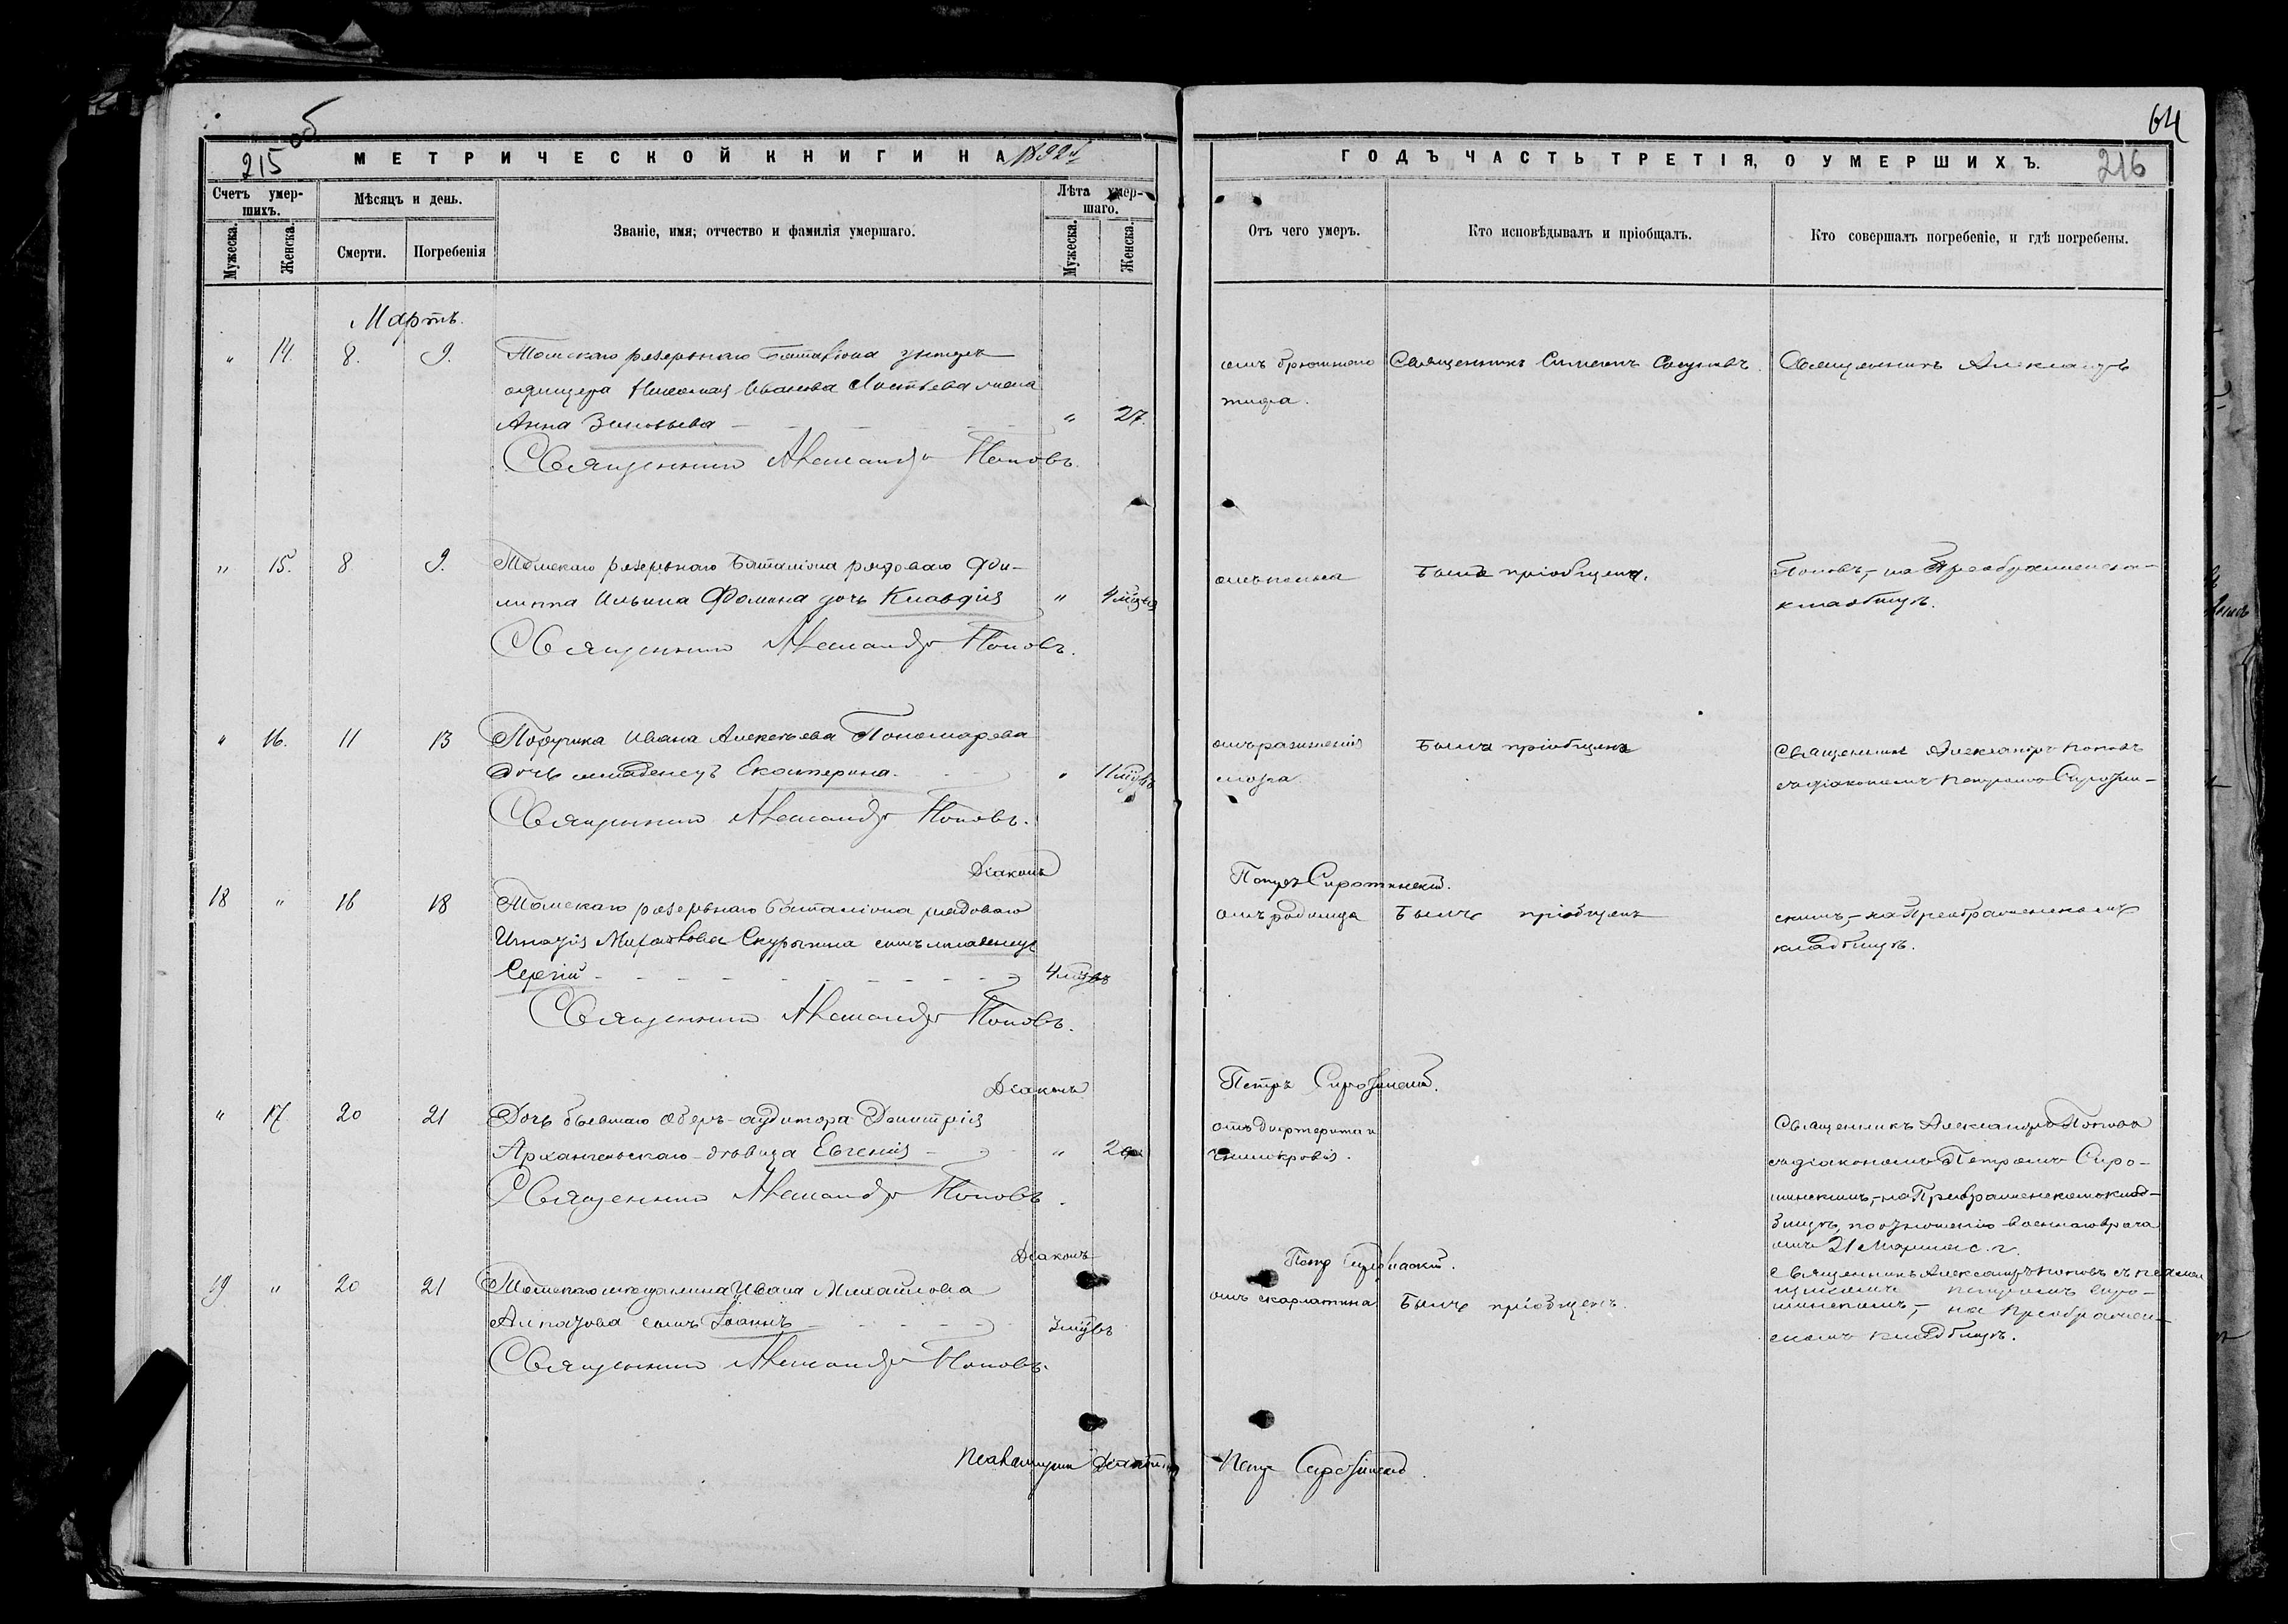 об
215
МЕТРИЧЕСКОЙ КНИГИ НА 1892й
Счетъ умершихъ.
Мѣсяцъ и день.
Званіе, имя, отчество и фамилія умершаго.
Лѣта умершаго.
Мужеска.
Женска.
Смерти.
Погребенія
Мужеска.
Женска.
64
ГОДЪ ЧАСТЬ ТРЕТІЯ, О УМЕРШИХЪ.
216
Отъ чего умеръ.
Кто исповѣдывалъ и пріобщалъ.
Кто совершалъ погребеніе, и гдѣ погребены.
Мартъ.
" 14. 8. 9. Томскаго резервнаго баталіона унтеръ
офицера Николая Иванова жена
Анна Зиновьева " 27.
Священникъ Александръ Поповъ.
отъ брюшнаго
тифа.
Священникъ
Священникъ Александръ
" 15. 8. 9. Томскаго резервнаго баталіона рядоваго Фи-
липпа Ильина Фомина дочь Клавдія " 4 мѣсяц
Священникъ Александръ Поповъ.
была пріобщена.
Поповъ,- на Преображенском
кладбищѣ.
" 16. 11 13 Поручика Ивана Алексѣева Пономарева
дочь младенецъ Екатерина. " 11 мѣсцвъ
Священникъ Александръ Поповъ.
отъ размягченія
мозга
была пріобщена
Священникъ Александръ Поповъ
съ діакономъ Петромъ Сиротин-
Діаконъ Петръ Сиротинскій.
18 " 16 18 Томскаго резервнаго баталіона рядоваго
Игнатія Михайлова Скурыгина сынъ младенецъ
Сергій 4 мѣсцвъ
Священникъ Александръ Поповъ.
отъ родимца
былъ пріобщенъ
скимъ,- на Преображенскомъ
кладбищѣ.
Діаконъ Петръ Сиротинскій.
" 17. 20 21 Дочь бывшаго Оберъ-аудитора Димитрія
Архангельскаго - дѣвица Евгенія " 20
Священникъ Александръ Поповъ.
отъ дифтерита и
гнилокровія.
Священникъ Александръ Поповъ
съ діакономъ Петромъ Сиро-
тинскимъ,- на Преображенскомъ клад-
бищѣ, по отношенію военнаго врача
отъ 21 Марта с. г.
Діаконъ Петръ Сиротинскій.
19 " 20 21 Томскаго мѣщанина Ивана Михайлова
сынъ Іоаннъ 3 мѣсцвъ
Священникъ Александръ Поповъ.
отъ скарлатина
былъ пріобщенъ.
Священникъ Александръ Поповъ съ псалом
щикомъ Петромъ Сиро-
тинскимъ,- на Преображен-
скомъ кладбищѣ.
Псаломщикъ Діаконъ Петръ Сиротинскій.